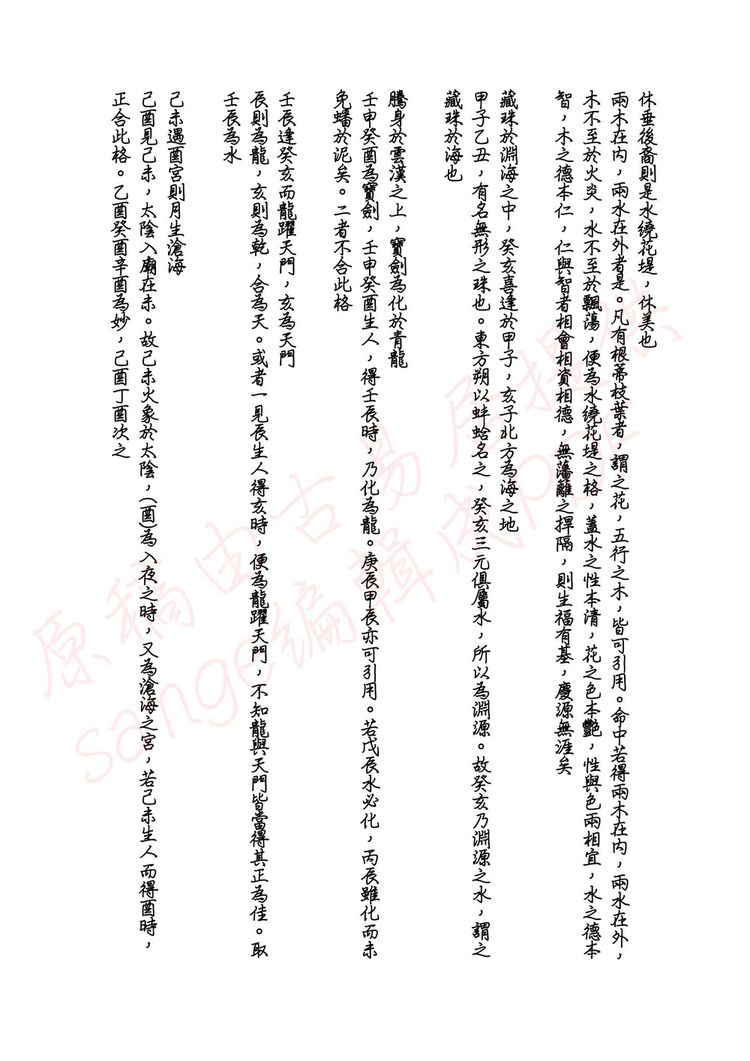 休垂後裔則是水繞花堤，休美也
兩木在內，兩水在外者是。凡有根蒂枝葉者，謂之花，五行之木，皆可引用。命中若得兩木在內，兩水在外，
木不至於火炎，水不至於飄蕩，便為水繞花堤之格，蓋水之性本清，花之色本艷，性與色兩相宜，水之德本
智，木之德本仁，仁與智者相會相資相德，無藩離之捍隔，則生福有基，慶源無涯矣
藏珠於淵海之中，癸亥喜逢於甲子，亥子北方為海之地
甲子乙丑，有名無形之珠也。東方朔以蚌蛤名之，癸亥三元俱屬水，所以為淵源。故癸亥乃淵源之水，謂之
藏珠於海也
騰身於雲漢之上，寶劍為化於青龍
壬申癸酉為寶劍，壬申癸酉生人，得壬辰時，乃化為龍。庚辰甲辰亦可引用。若戊辰水必化，丙辰雖化而未
免蟠於泥矣。二者不合此格
壬辰逢癸亥而龍躍天門，亥為天門
辰則為龍，亥則為乾，合為天。或者一見辰生人得亥時，便為龍躍天門，不知龍與天門皆當得其正為佳。取
壬辰為水
己未遇酉宮則月生滄海
己酉見己未，太陰入廟在未。故己未火象於太陰，(酉)為入夜之時，又為滄海之宮，若己未生人而得酉時，
正合此格。乙酉癸酉辛酉為妙，己酉丁酉次之
原稿由古易居提供
sange編輯成pdf